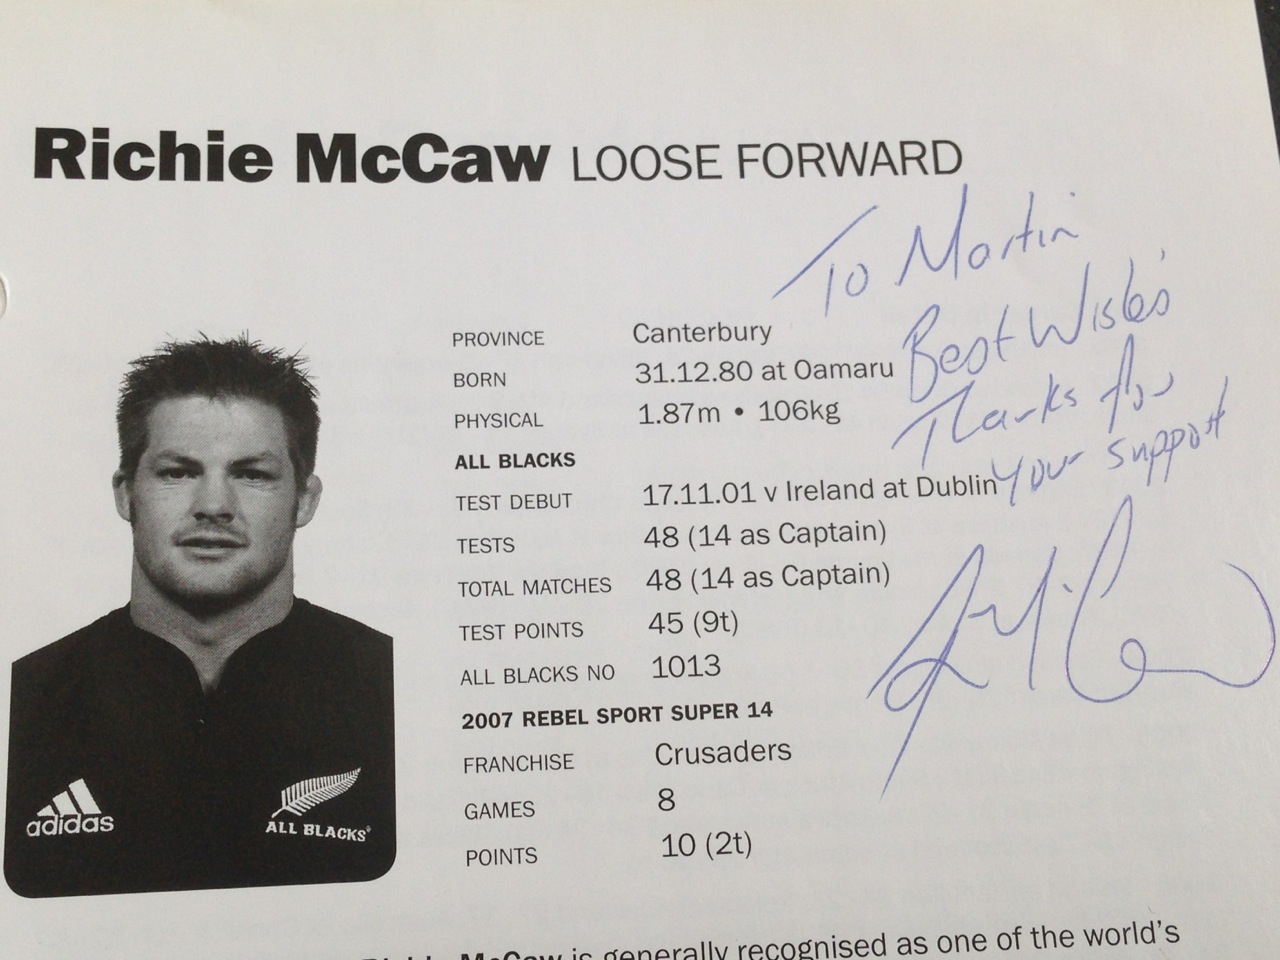 Richie McCaw LOOSE FORWARD
To Martin
Best Wishes
Thanks for
your support
PROVINCE Canterbury
BORN 31.12.80 at Oamaru
PHYSICAL 1.87m • 106kg
ALL BLACKS
TEST DEBUT 17.11.01 v Ireland at Dublin
TESTS 48 (14 as Captain)
TOTAL MATCHES 48 (14 as Captain)
TEST POINTS 45 (9t)
ALL BLACKS NO 1013
2007 REBEL SPORT SUPER 14
FRANCHISE Crusaders
GAMES 8
POINTS 10 (2t)
adidas
ALL BLACKS®
Richie McCaw is generally recognised as one of the world's